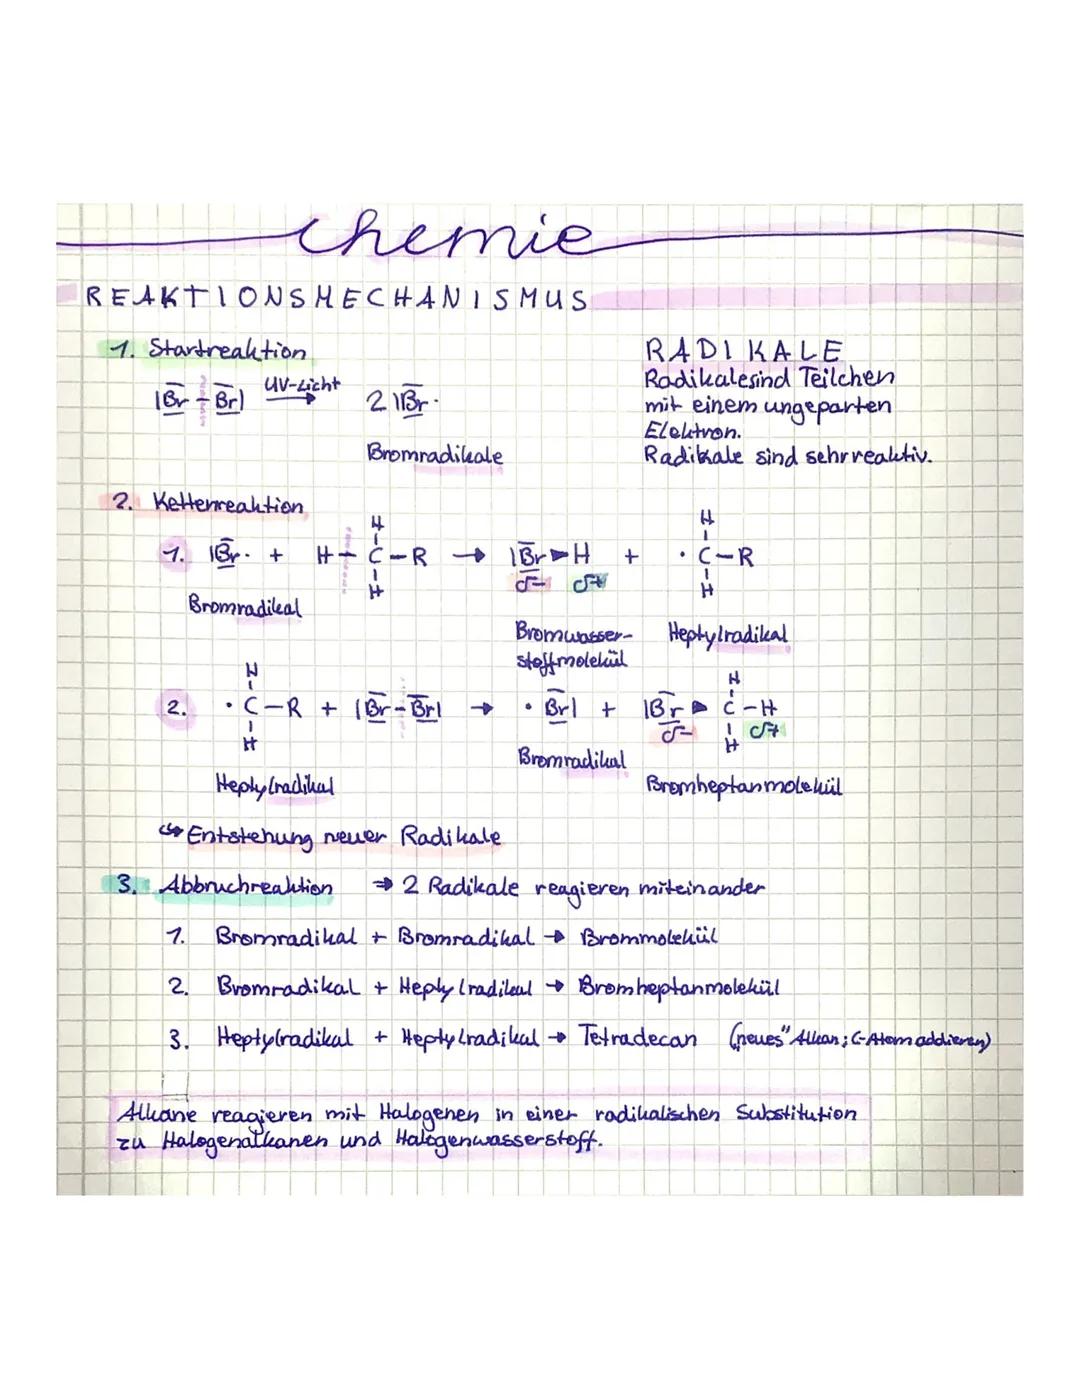 Chemie
REAKTIONSMECHANISMUS
1. Startreaktion
|Br - Br| UV-Licht → 2 |Br·
Bromradikale
RADIKALE
Radikale sind Teilchen
mit einem ungeparten
Elektron.
Radikale sind sehr reaktiv.
2. Kettenreaktion
H H
1. |Br· + H - C - R → |Br ▶ H + · C - R
H δ- δ+ H
Bromradikal
Bromwasser- Heptylradikal
stoffmolekül
H H
2. · C - R + |Br - Br| → · Br| + |Br ▶ C - H
H δ- H δ+
Bromradikal
Heptylradikal Bromheptanmolekül
↪ Entstehung neuer Radikale
3. Abbruchreaktion ⇒ 2 Radikale reagieren miteinander
1. Bromradikal + Bromradikal → Brommolekül
2. Bromradikal + Heptylradikal → Bromheptanmolekül
3. Heptylradikal + Heptylradikal → Tetradecan („neues" Alkan; C-Atom addieren)
Alkane reagieren mit Halogenen in einer radikalischen Substitution
zu Halogenalkanen und Halogenwasserstoff.